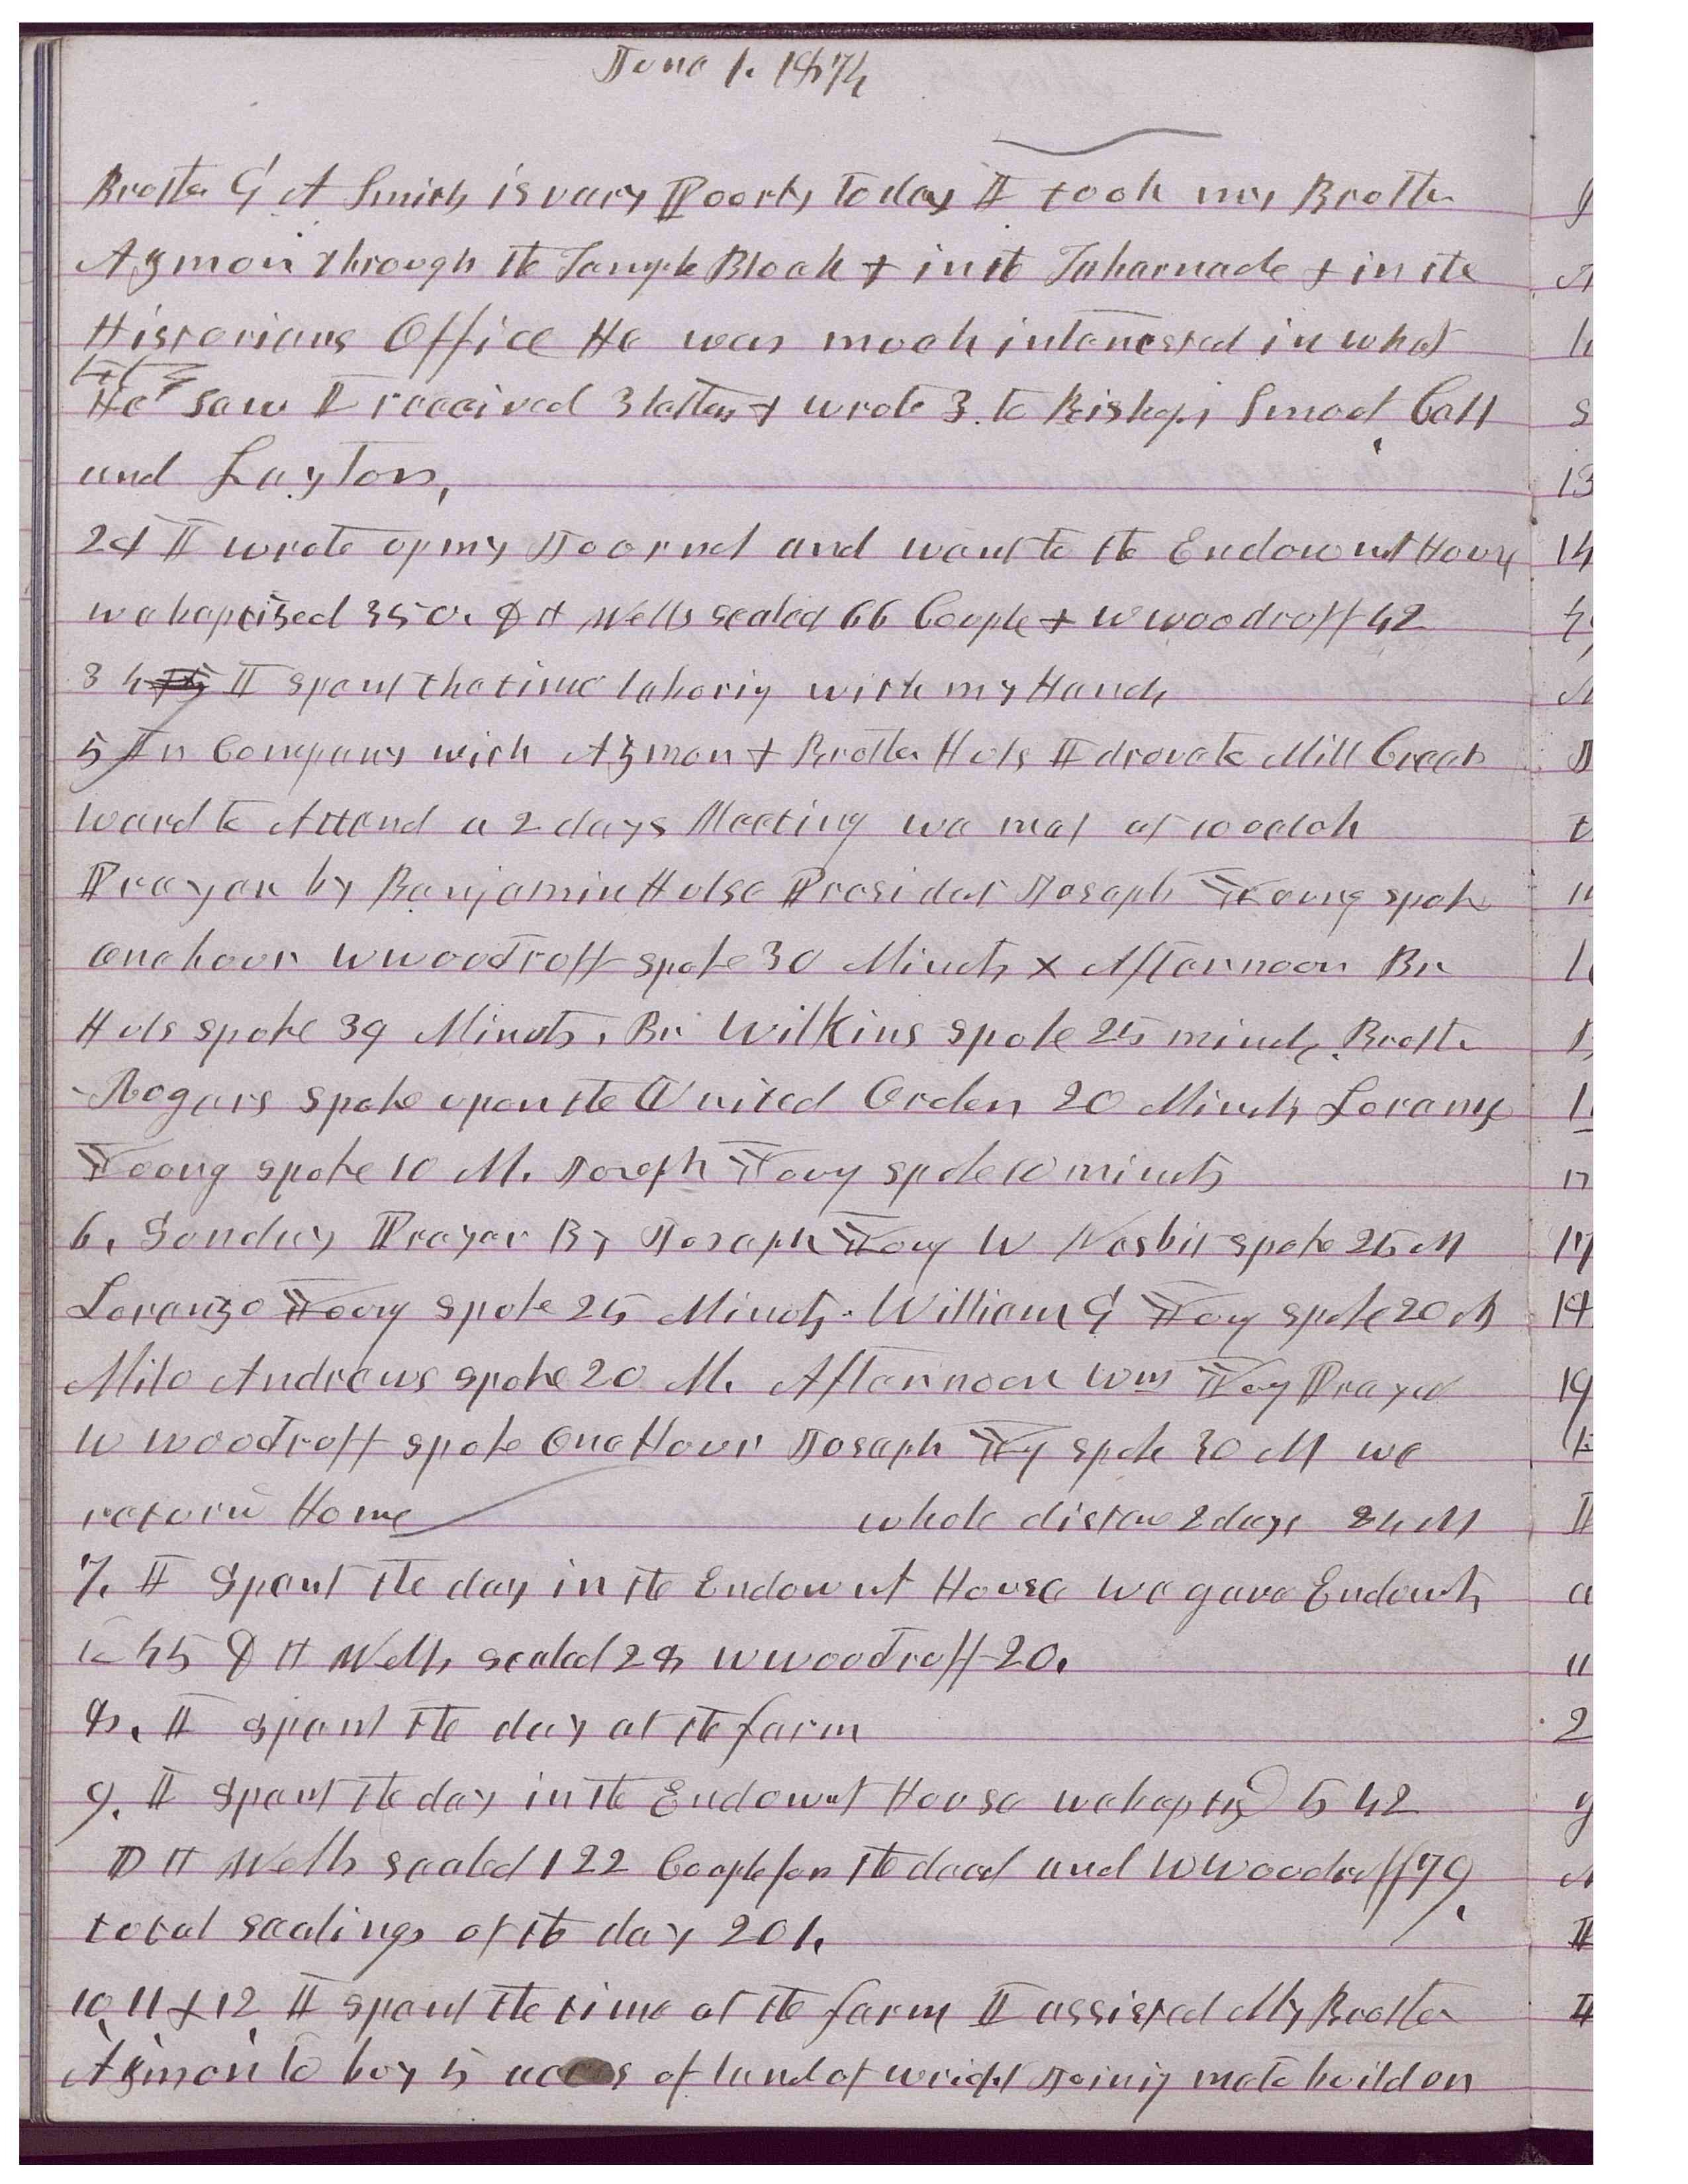 June 1. 1874
Brother G A Smith is vary Poorly today I took my Brother
Azmon through the Temple Block & in the Tabarnacle & in the
Historians Office He was much interested in what
He saw I received 3 letters & wrote 3. to Bishops Smoot Call
and Layton,
2d I wrote up my Journal and went to the Endowmt House
we baptized 350. D H Wells sealed 66 Couple & W Woodruff 42
3 4 I spent the time laboring with my Hands
5 In Company with Azmon & Brother Huls I drove to Mill Creek
ward to Attend a 2 days Meeting we met at 10 oclok
Prayer by Benjamin Hulse Presidet Joseph Young spoke
one hour W Woodruff spoke 30 Minuts X Afternoon Br
Huls spoke 39 Minuts, Br Wilkins spoke 25 minuts, Brother
Rogers spoke upon the United Order 20 Minuts Loranzo
Young spoke 10 M. Joseph Young spoke 10 minuts
6. Sunday Prayer By Joseph Young W Nesbit spoke 25 M
Loranzo Young spoke 25 Minuts. William G Young spoke 20 M
Milo Andrews spoke 20 M. Afternoon Wm Young Prayed
W Woodruff spoke One Hour Joseph Young spoke 30 M we
return Home whole distanc 2 days 24 M
7. I Spent the day in the Endowmt House we gave Endowmts
to 45 D H Wells sealed 28 W Woodruff 20.
8. I spent the day at the farm
9. I Spent the day in the Endowmt House we baptized 542
D H Wells sealed 122 Couple for the dead and W Woodruff 79
total sealings of the day 201.
10, 11 & 12, I spent the time at the farm I assisted My Brother
Azmon to buy 5 acres of land of wright Joining me to build on